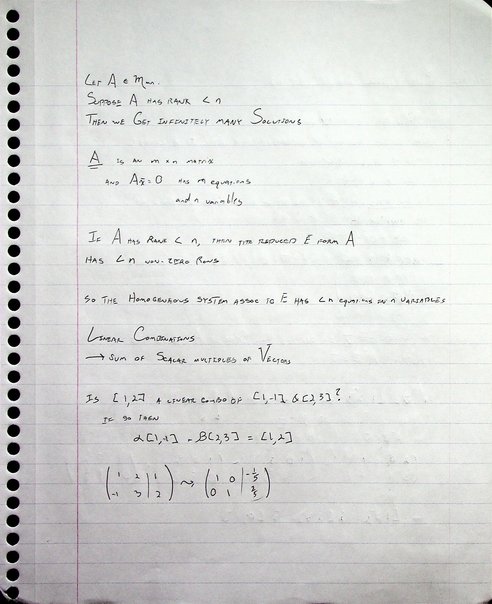 Let A ∈ Mmn.
Suppose A has rank < n
Then we Get Infinitely many Solutions
A is an m × n matrix
and Ax̄ = 0 has m equations
and n variables
If A has Rank < n, then the reduced E form A
has < n non-zero Rows
So the Homogenious system assoc to E has < n equations in n variables
Linear Combinations
→ Sum of Scalar multiples of Vectors
Is [1,2] a linear combo of [1,-1] & [2,3]?
If so then
α[1,-1] - β[2,3] = [1,2]
( 1 2 | 1 ) ⇝ ( 1 0 | -1/5 )
( -1 3 | 2 ) ( 0 1 | 3/5 )